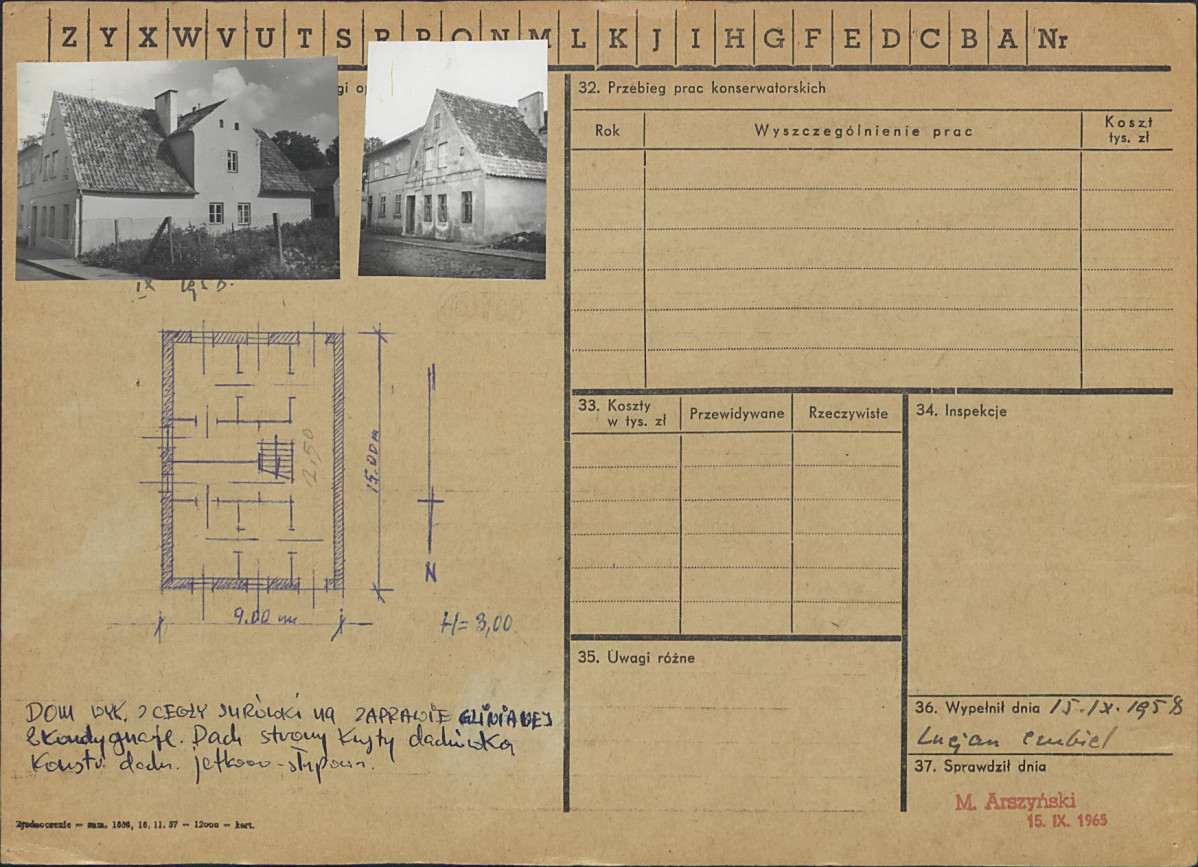 Z Y X W V U T S R P O N M L K J I H G F E D C B A Nr
32. Przebieg prac konserwatorskich
Rok
Wyszczególnienie prac
Koszt
tys. zł
IX 1958.
2,50
15.00 m
N
9.00 m
H= 3,00
33. Koszty
w tys. zł
Przewidywane
Rzeczywiste
34. Inspekcje
35. Uwagi różne
DOM WYK. Z CEGŁY SURÓWKI NA ZAPRAWIE GLINIANEJ
2 kondygnacje. Dach stromy kryty dachówką
Konstr. dach. jętkowo-stolcowa.
36. Wypełnił dnia 15.IX.1958
Lucjan
37. Sprawdził dnia
M. Arszyński
15. IX. 1965
Zjednoczenie — zam. 1696, 16. 11. 57 — 12000 — kart.